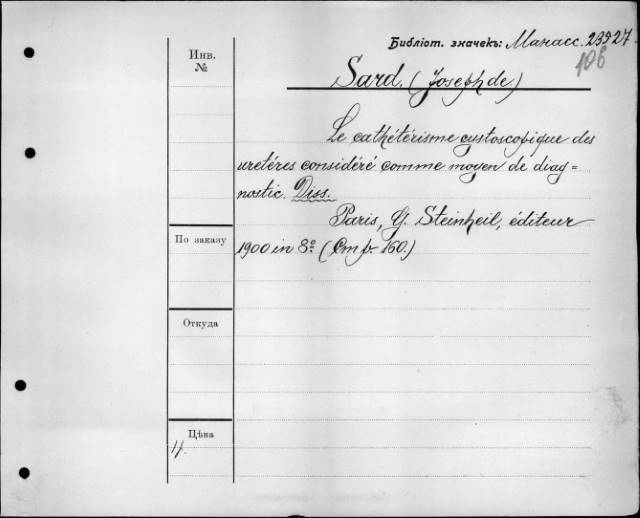 Библіот. значекъ: Манасс. 23927
106
Инв.
№
Sard. (Joseph de)
Le cathétérisme cystoscopique des
uretéres considéré comme moyen de diag=
nostic. Diss.
Paris, G. Steinheil, éditeur
1900 in 8.° (Стр. 160.)
По заказу
Откуда
Цѣна